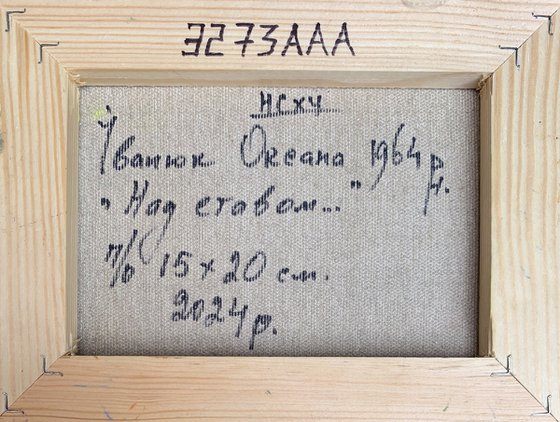 3273AAA
НСХУ
Іванюк Оксана 1964 р.н.
"Над ставом..."
п/о 15 x 20 см.
2024 р.